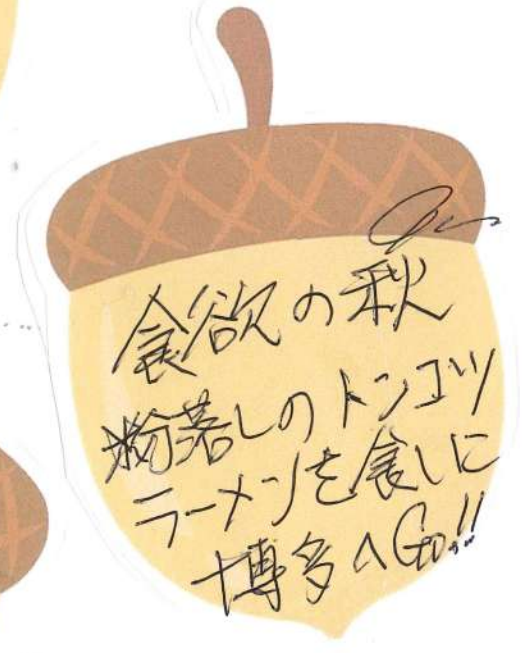 食欲の秋
粉落しのトンコツ
ラーメンを食しに
博多へGo!!